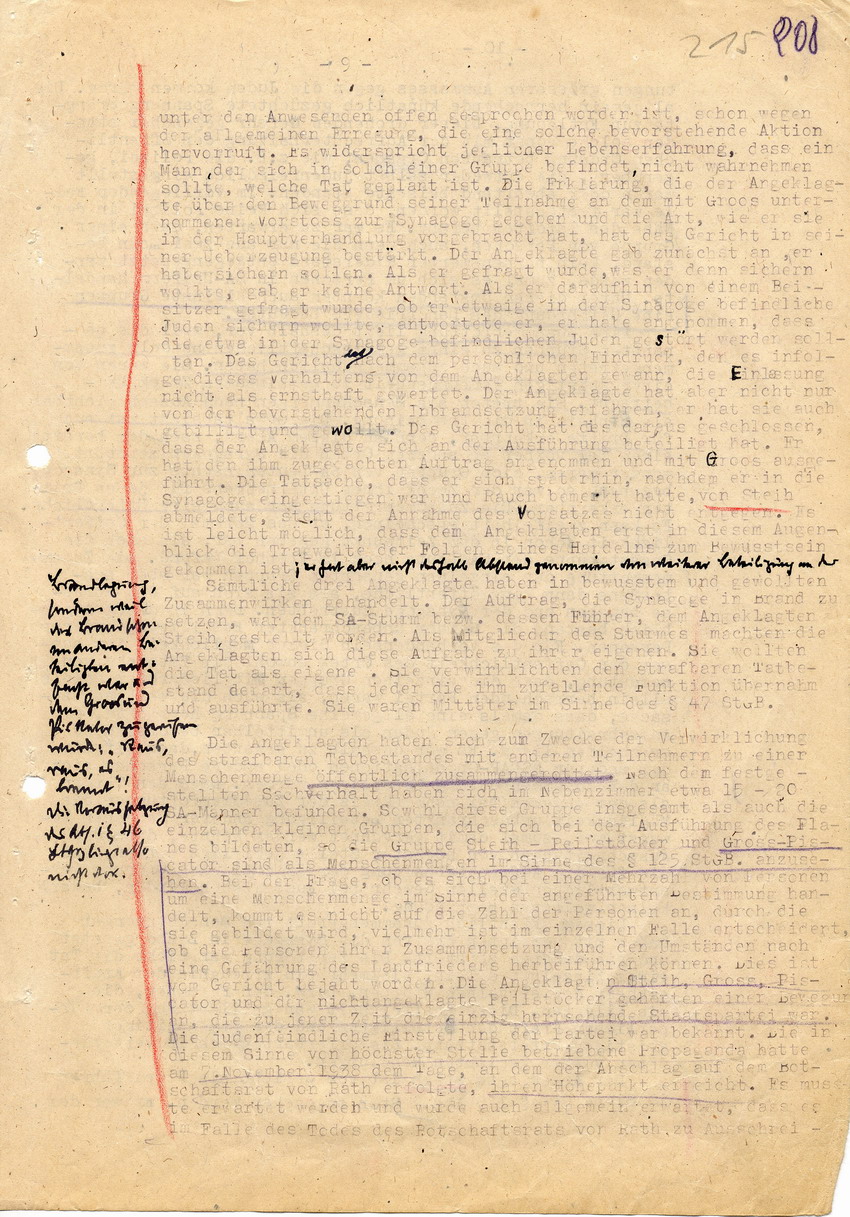 215 208
- 9 -
unter den Anwesenden offen gesprochen worden ist, schon wegen
der allgemeinen Erregung, die eine solche bevorstehende Aktion
hervorruft. Es widerspricht jeglicher Lebenserfahrung, dass ein
Mann,der sich in solch einer Gruppe befindet,nicht wahrnehmen
sollte, welche Tat geplant ist. Die Erklärung, die der Angeklag-
te über den Beweggrund seiner Teilnahme an dem mit Groos unter-
nommenen Vorstoss zur Synagoge gegeben und die Art, wie er sie
in der Hauptverhandlung vorgebracht hat, hat das Gericht in sei-
ner Ueberzeugung bestärkt. Der Angeklagte gab zunächst an ,er
habe sichern sollen. Als er gefragt wurde,was er denn sichern
wollte, gab er keine Antwort. Als er daraufhin von einem Bei-
sitzer gefragt wurde, ob er etwaige in der Synagoge befindliche
Juden sichern wollte, antwortete er, er habe angenommen, dass
die etwa in der Synagoge befindlichen Juden gestört werden soll-
ten. Das Gericht hat nach dem persönlichen Eindruck, den es infol-
ge dieses Verhaltens von dem Angeklagten gewann, die Einlassung
nicht als ernsthaft gewertet. Der Angeklagte hat aber nicht nur
von der bevorstehenden Inbrandsetzung erfahren, er hat sie auch
gebilligt und gewollt. Das Gericht hat dies daraus geschlossen,
dass der Angeklagte sich an der Ausführung beteiligt hat. Er
hat den ihm zugedachten Auftrag angenommen und mit Groos ausge-
führt. Die Tatsache, dass er sich späterhin, nachdem er in die
Synagoge eingestiegen war und Rauch bemerkt hatte,von Steih
abmeldete, steht der Annahme des Vorsatzes nicht entgegen. Es
ist leicht möglich, dass dem Angeklagten erst in diesem Augen-
blick die Tragweite der Folgen seines Handelns zum Bewusstsein
gekommen ist; er hat aber nicht deshalb Abstand genommen von weiterer Beteiligung an der
Brandlegung,
sondern weil
der Brand schon
von anderen Be-
teiligten
war und
dem Groos und
Piscator zugerufen
wurde: "Raus,
raus, es
brennt"!
die Voraussetzung
des § 46
nicht vor.
Sämtliche drei Angeklagte haben in bewusstem und gewollten
Zusammenwirken gehandelt. Der Auftrag, die Synagoge in Brand zu
setzen, war dem SA-Sturm bezw. dessen Führer, dem Angeklagten
Steih gestellt worden. Als Mitglieder des Sturmes machten die
Angeklagten sich diese Aufgabe zu ihrer eigenen. Sie wollten
die Tat als eigene . Sie verwirklichten den strafbaren Tatbe-
stand derart, dass jeder die ihm zufallende Funktion übernahm
und ausführte. Sie waren Mittäter im Sinne des § 47 StGB.
Die Angeklagten haben sich zum Zwecke der Verwirklichung
des strafbaren Tatbestandes mit anderen Teilnehmern zu einer
Menschenmenge öffentlich zusammengerottet. Nach dem festge -
stellten Sachverhalt haben sich im Nebenzimmer etwa 15 - 20
SA-Männer befunden. Sowohl diese Gruppe insgesamt als auch die
einzelnen kleiner Gruppen, die sich bei der Ausführung des Pla-
nes bildeten, so die Gruppe Steih - Peilstöcker und Gross-Pis-
cator sind als Menschenmengen im Sinne des § 125 StGB. anzuse-
hen. Bei der Frage, ob es sich bei einer Mehrzahl von Personen
um eine Menschenmenge im Sinne der angeführten Bestimmung han-
delt, kommt es nicht auf die Zahl der Personen an, durch die
sie gebildet wird, vielmehr ist im einzelnen Falle entscheidend,
ob die Personen ihrer Zusammensetzung und den Umständen nach
eine Gefährung des Landfriedens herbeiführen können. Dies ist
vom Gericht bejaht worden. Die Angeklagten Steih, Gross, Pis-
cator und der nichtangeklagte Peilstöcker gehörten einer Bewegun
an, die zu jener Zeit die einzig herrschende Staatspartei war.
Die judenfeindliche Einstellung der Partei war bekannt. Die in
diesem Sinne von höchster Stelle betriebene Propaganda hatte
am 7.November 1938 dem Tage, an dem der Abschlag auf dem Bot-
schaftsrat von Rath erfolgte, ihren Höhepunkt erreicht. Es muss-
te erwartet werden und wurde auch allgemein erwartet, dass es
im Falle des Todes des Botschaftsrats von Rath zu Ausschrei -